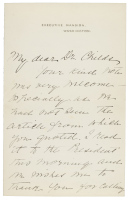 EXECUTIVE MANSION,
WASHINGTON.
My dear Dr. Childs
Your kind note
was very welcome –
especially as we
had not seen the
article from which
you quoted. I read
it to the President
this morning and
he wishes me to
thank you for